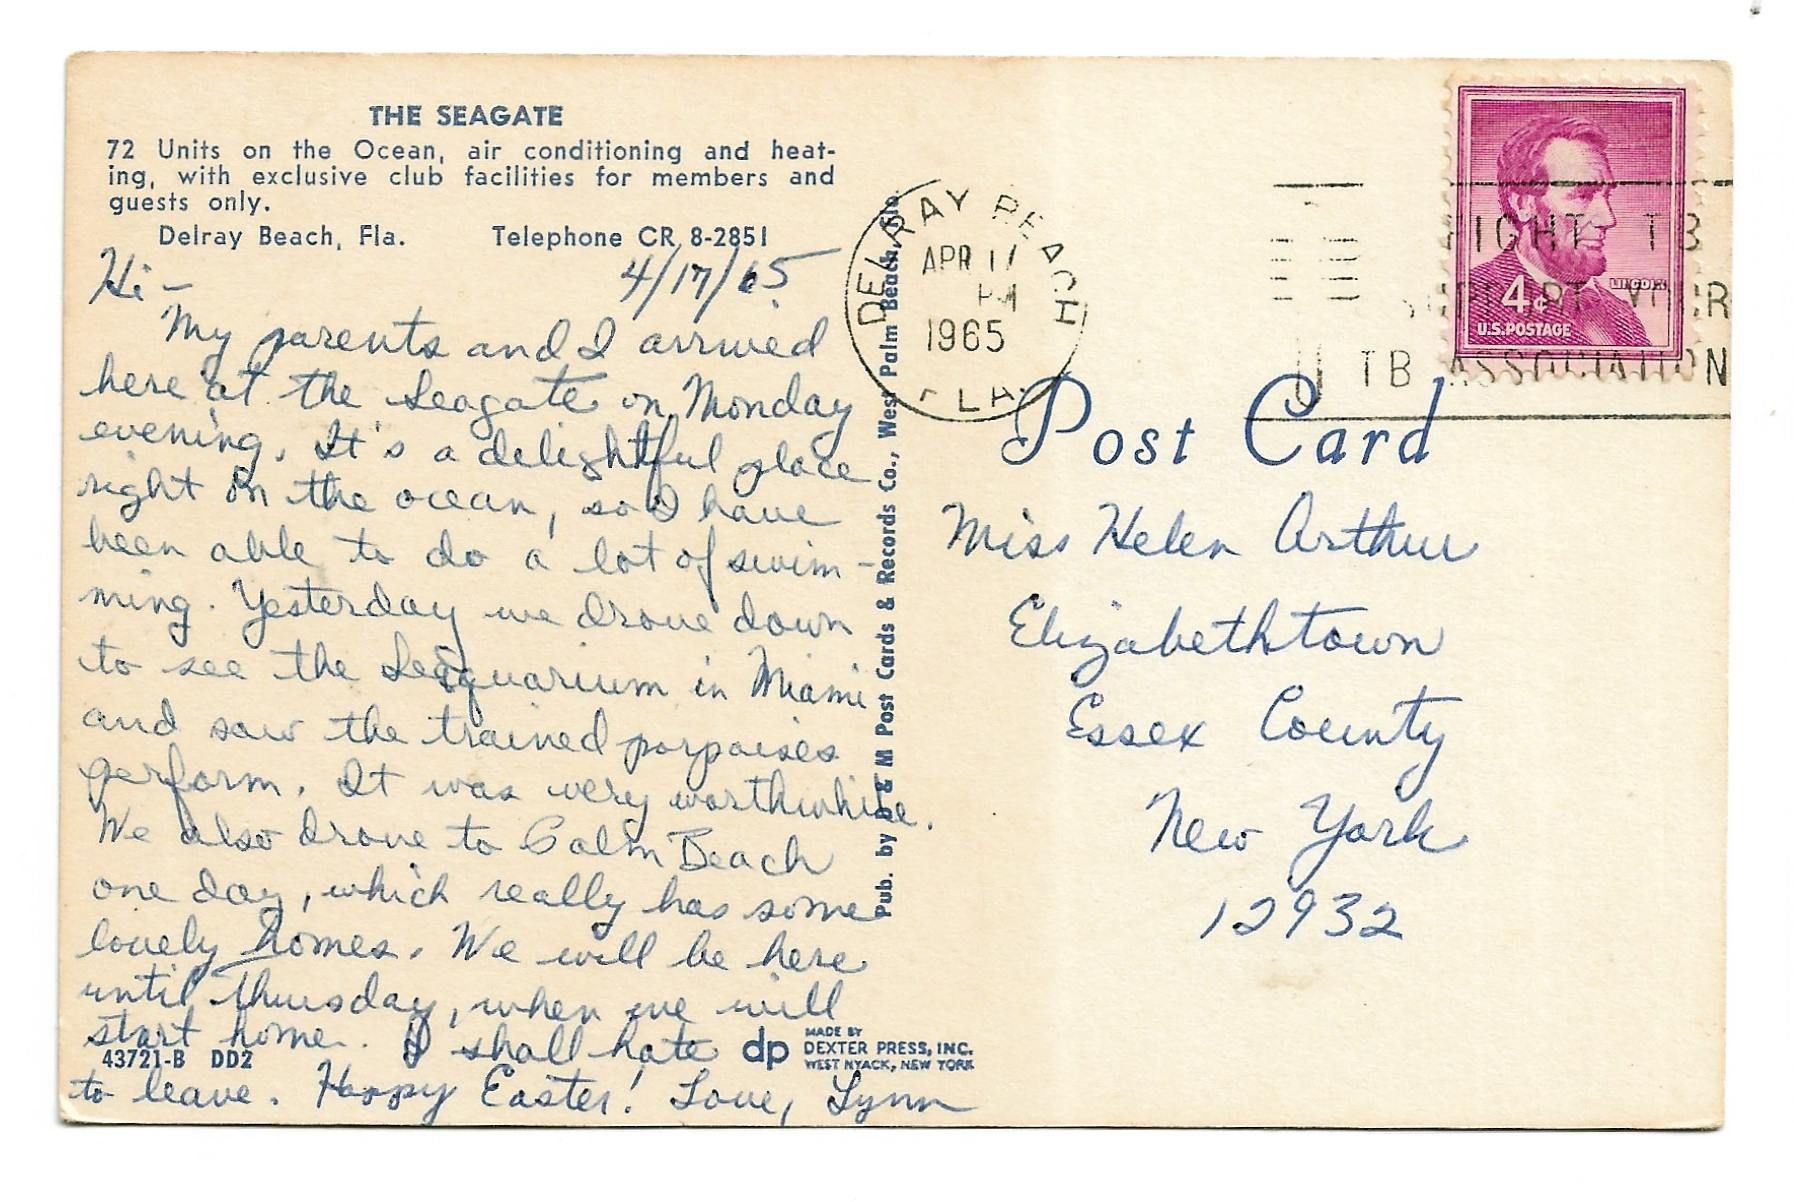 THE SEAGATE
72 Units on the Ocean, air conditioning and heat-
ing, with exclusive club facilities for members and
guests only.
Delray Beach, Fla. Telephone CR 8-2851
Hi - 4/17/65
My parents and I arrived
here at the Seagate on Monday
evening. It's a delightful place
right on the ocean, so I have
been able to do a lot of swim-
ming. Yesterday we drove down
to see the Seaquarium in Miami
and saw the trained porpoises
perform. It was very worthwhile.
We also drove to Palm Beach
one day, which really has some
lovely homes. We will be here
until Thursday, when we will
start home. I shall hate
to leave. Happy Easter! Love, Lynn
43721-B DD2
dp MADE BY
DEXTER PRESS, INC.
WEST NYACK, NEW YORK
Pub. by & M Post Cards & Records Co., West Palm Beach, Fla.
DELRAY BEACH
APR 17
PM
1965
FLA.
FIGHT TB
SUPPORT YOUR
TB ASSOCIATION
LINCOLN
4¢
U.S. POSTAGE
Post Card
Miss Helen Arthur
Elizabethtown
Essex County
New York
12932